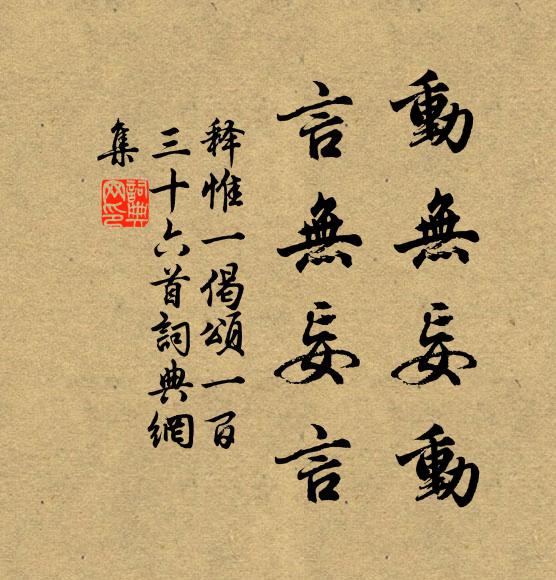 動無妄動
言無妄言
释惟一偈頌一百
三十六首詞典網
集
詞典
网印